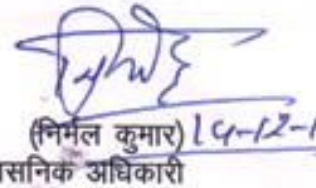 (निर्मल कुमार) 14-12-1
सनिक अधिकारी